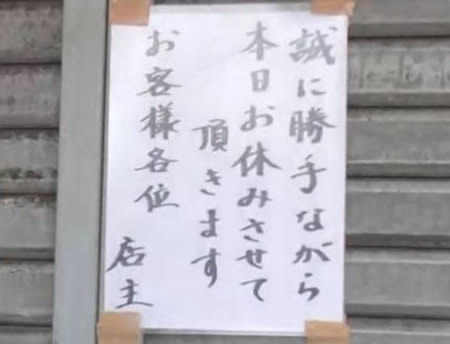 誠に勝手ながら
本日お休みさせて
頂きます
お客様各位
店主